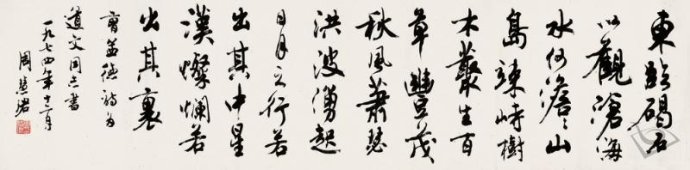 東臨碣石
以觀滄海
水何澹々山
島竦峙樹
木叢生百
草豐茂
秋風蕭瑟
洪波湧起
日月之行若
出其中星
漢燦爛若
出其裏
曹孟德詩為
道文同志書
一九七四年十二月
周慧珺